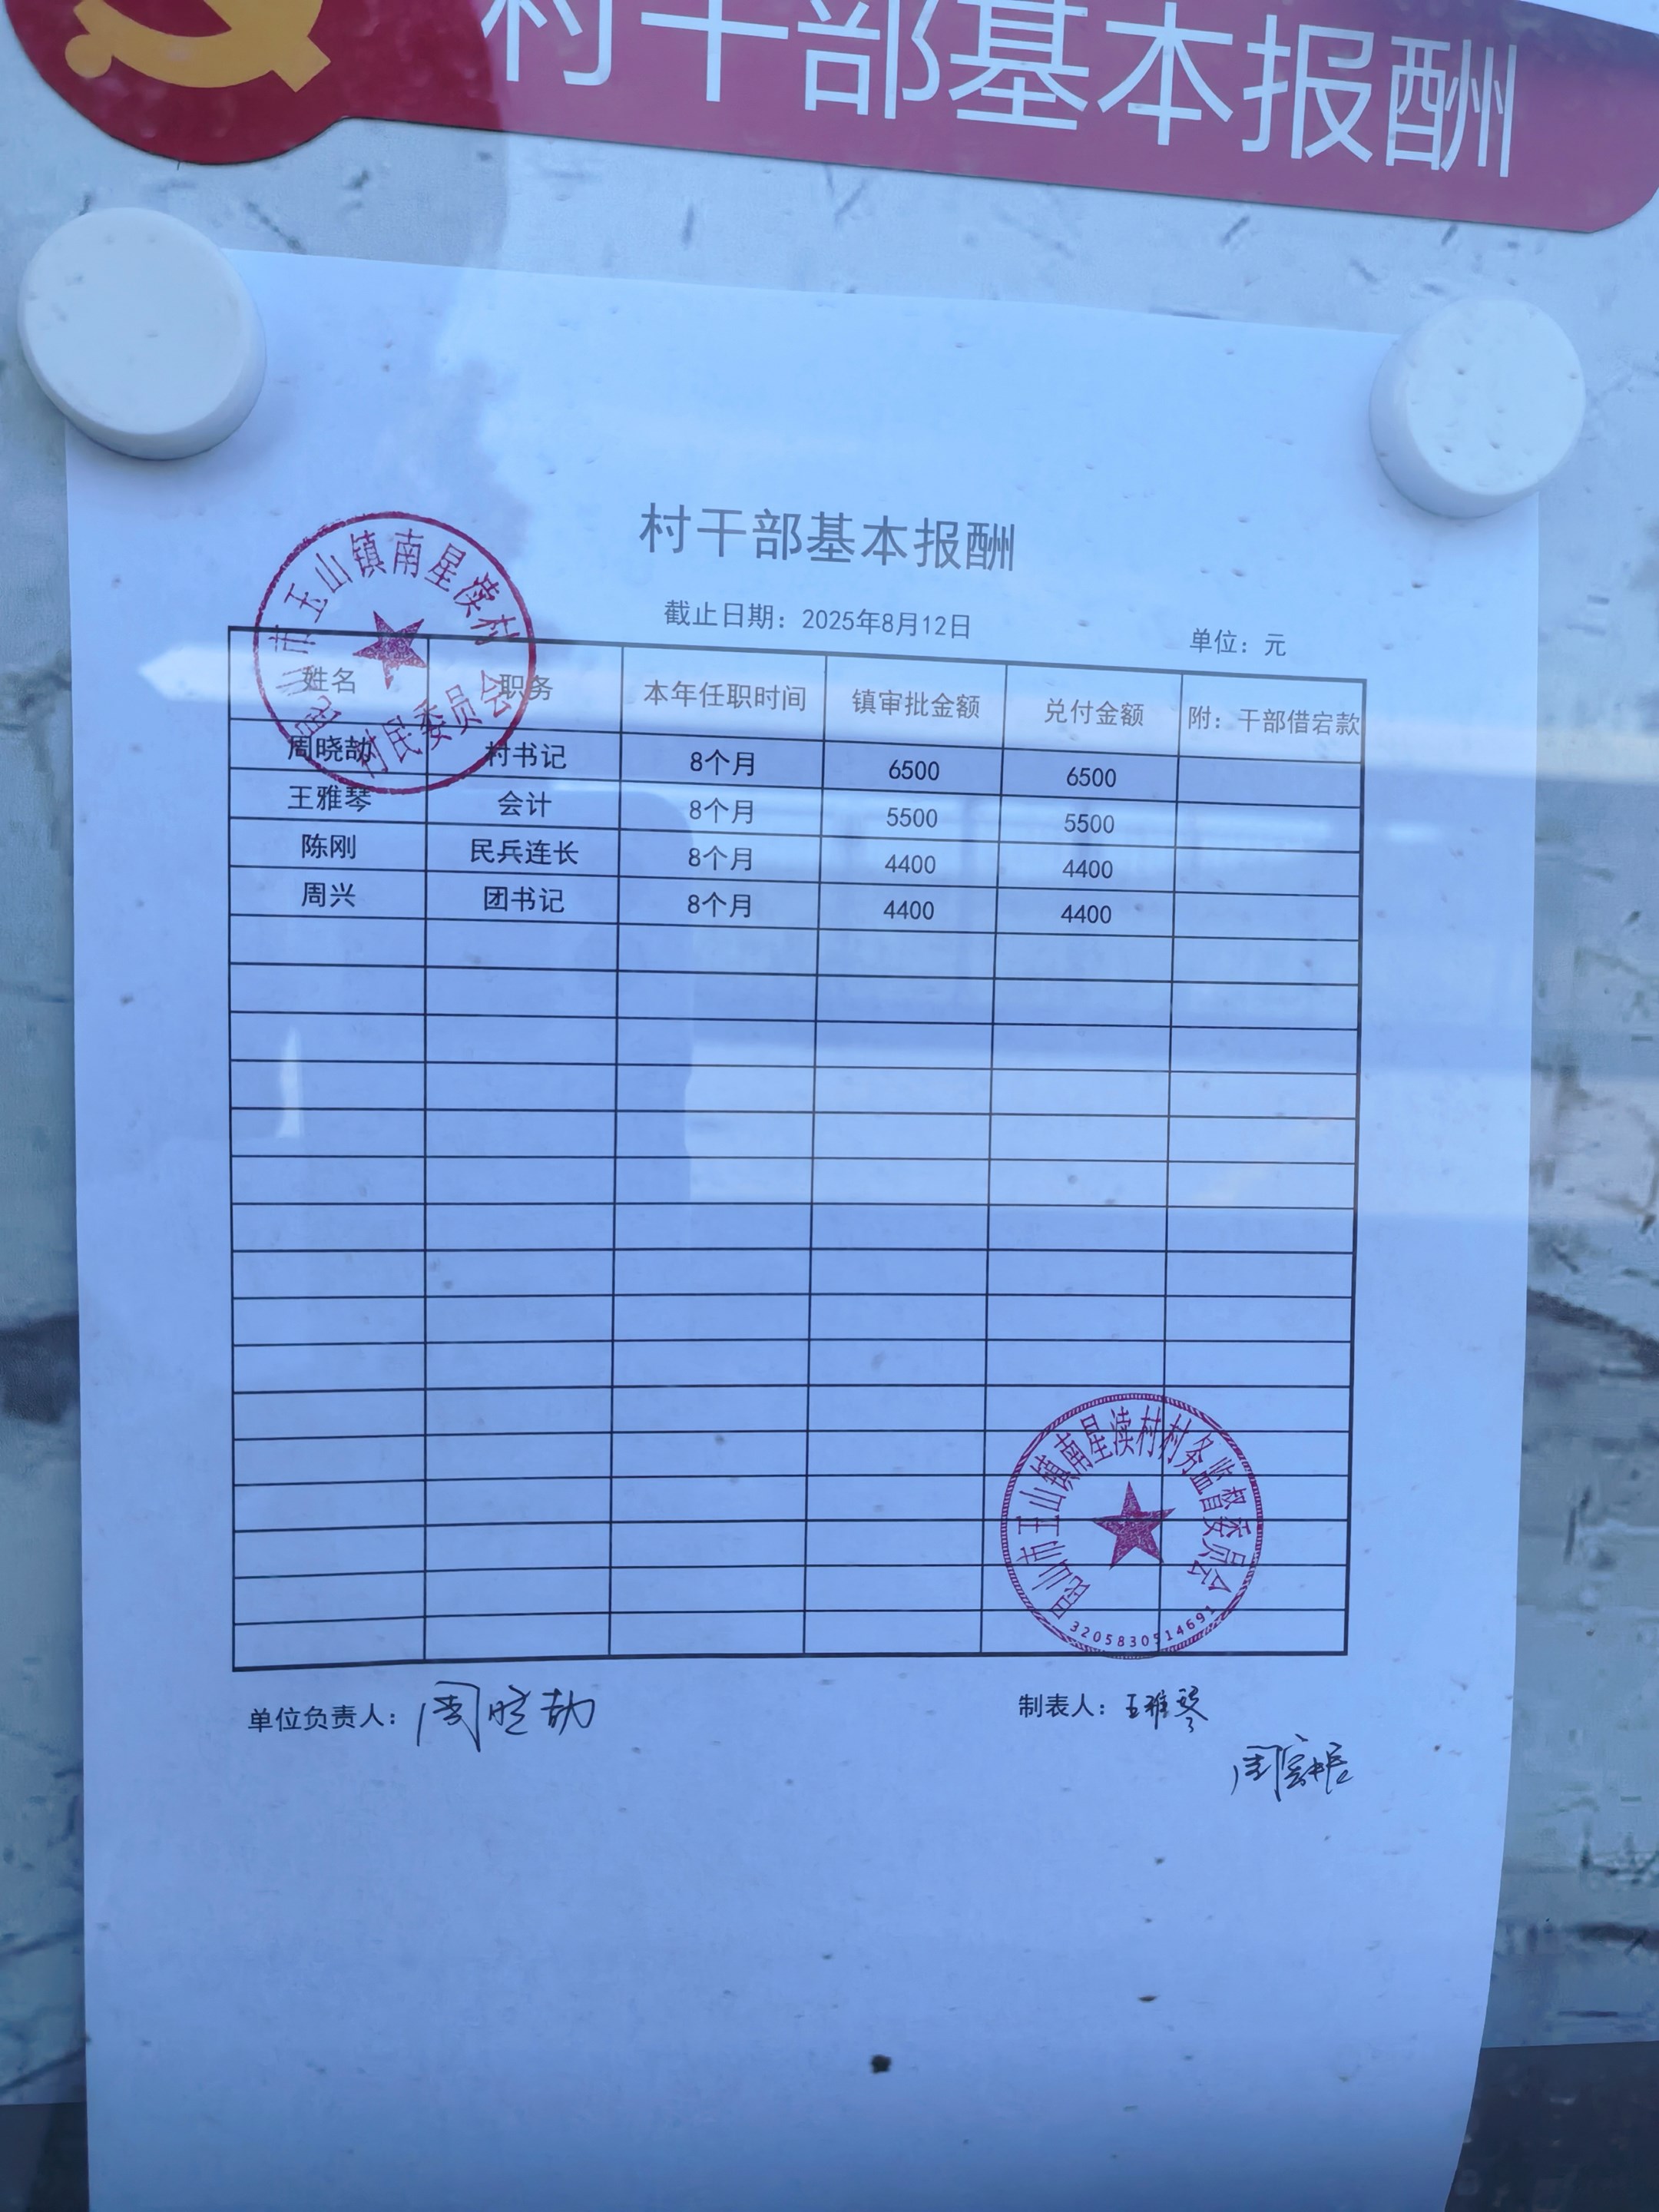 村干部基本报酬
村干部基本报酬
截止日期：2025年8月12日
单位：元
姓名 职务 本年任职时间 镇审批金额 兑付金额 附：干部借宕款
周晓劼 村书记 8个月 6500 6500
王雅琴 会计 8个月 5500 5500
陈刚 民兵连长 8个月 4400 4400
周兴 团书记 8个月 4400 4400
昆山市玉山镇南星渎村
村民委员会
昆山市玉山镇南星渎村村务监督委员会
3205830514691
单位负责人：周晓劼
制表人：王雅琴